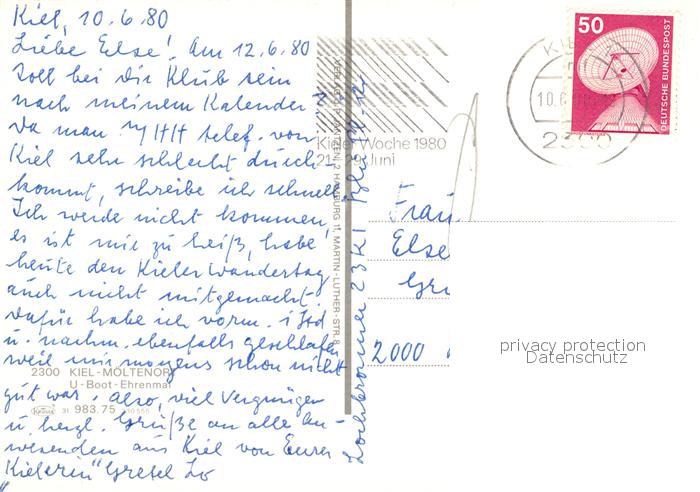 Kiel, 10.6.80
Liebe Else! Am 12.6.80
soll bei Dir Klub sein
nach meinem Kalender
Da man n/HH telef. von
Kiel sehr schlecht durch-
kommt, schreibe ich schnell.
Ich werde nicht kommen,
es ist mir zu heiß, habe
heute den Kieler Wandertag
auch nicht mitgemacht.
Dafür habe ich vorm. 1 Std
u. nachm. ebenfalls geschlafen
weil mir morgens schon nicht
gut war. Also, viel Vergnügen
u. herzl. Grüße an alle An-
wesenden aus Kiel von Eurer
"Kielerin" Gretel
2300 KIEL-MÖLTENORT
U-Boot-Ehrenmal
Krüger 31 983.75
HAMBURG 11, MARTIN-LUTHER-STR. 8
Kieler Woche 1980
21.-29. Juni
KIEL
2300
50
DEUTSCHE BUNDESPOST
Frau
Else
2000
privacy protection
Datenschutz